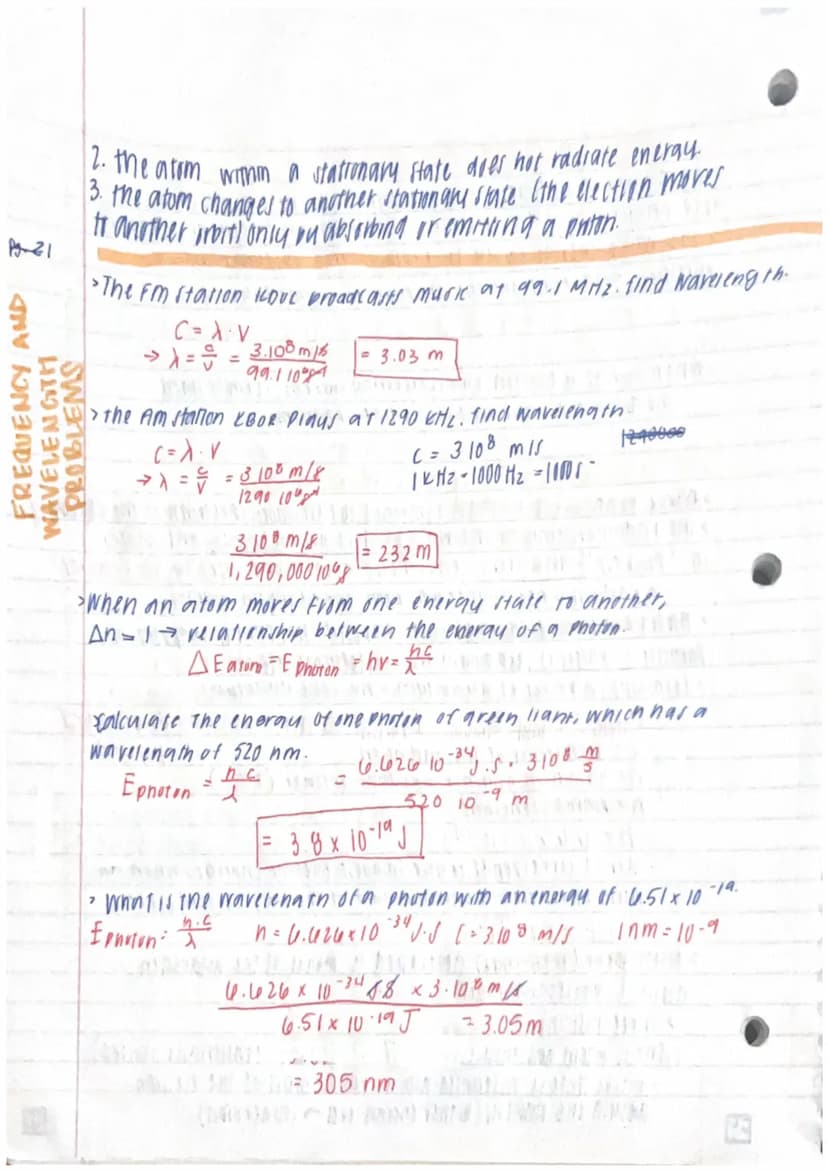 2. the atom within a stationary state does not radiate energy.
3. the atom changes to another stationary state (the election moves
to another orbit) only by absorbing or emitting a photon.
Pg-21
FREQUENCY AND
WAVELENGTH
PROBLEMS
>The FM station KOUL broadcasts music at 99.1 MHz. find wavelength.
C = λ · V
→ λ = c/v = 3.10⁸ m/s / 99.1 10⁶ s⁻¹ = 3.03 m
> the AM station KBOR plays at 1290 kHz. find wavelength.
C = λ · V
C = 3 10⁸ m/s
→ λ = c/v = 3 10⁸ m/s / 1290 10⁶ s⁻¹
1 KHz = 1000 Hz = 1000 s⁻
3 10⁸ m/s / 1,290,000 10⁶ s = 232 m
>When an atom moves from one energy state to another,
Δn = 1 → relationship between the energy of a photon.
Δ E atom = E photon = hv = hc/λ
Calculate the energy of one photon of green light, which has a
wavelength of 520 nm.
E photon = h c / λ = 6.626 10⁻³⁴ J.s · 3 10⁸ m/s / 520 10⁻⁹ m
= 3.8 x 10⁻¹⁹ J
> What is the wavelength of a photon with an energy of 6.51 x 10⁻¹⁹.
E photon = h.c / λ h = 6.626 x 10⁻³⁴ J.s C = 3.10⁸ m/s 1 nm = 10-9
6.626 x 10⁻³⁴ J s x 3.10⁸ m/s / 6.51 x 10⁻¹⁹ J = 3.05 m
= 305 nm